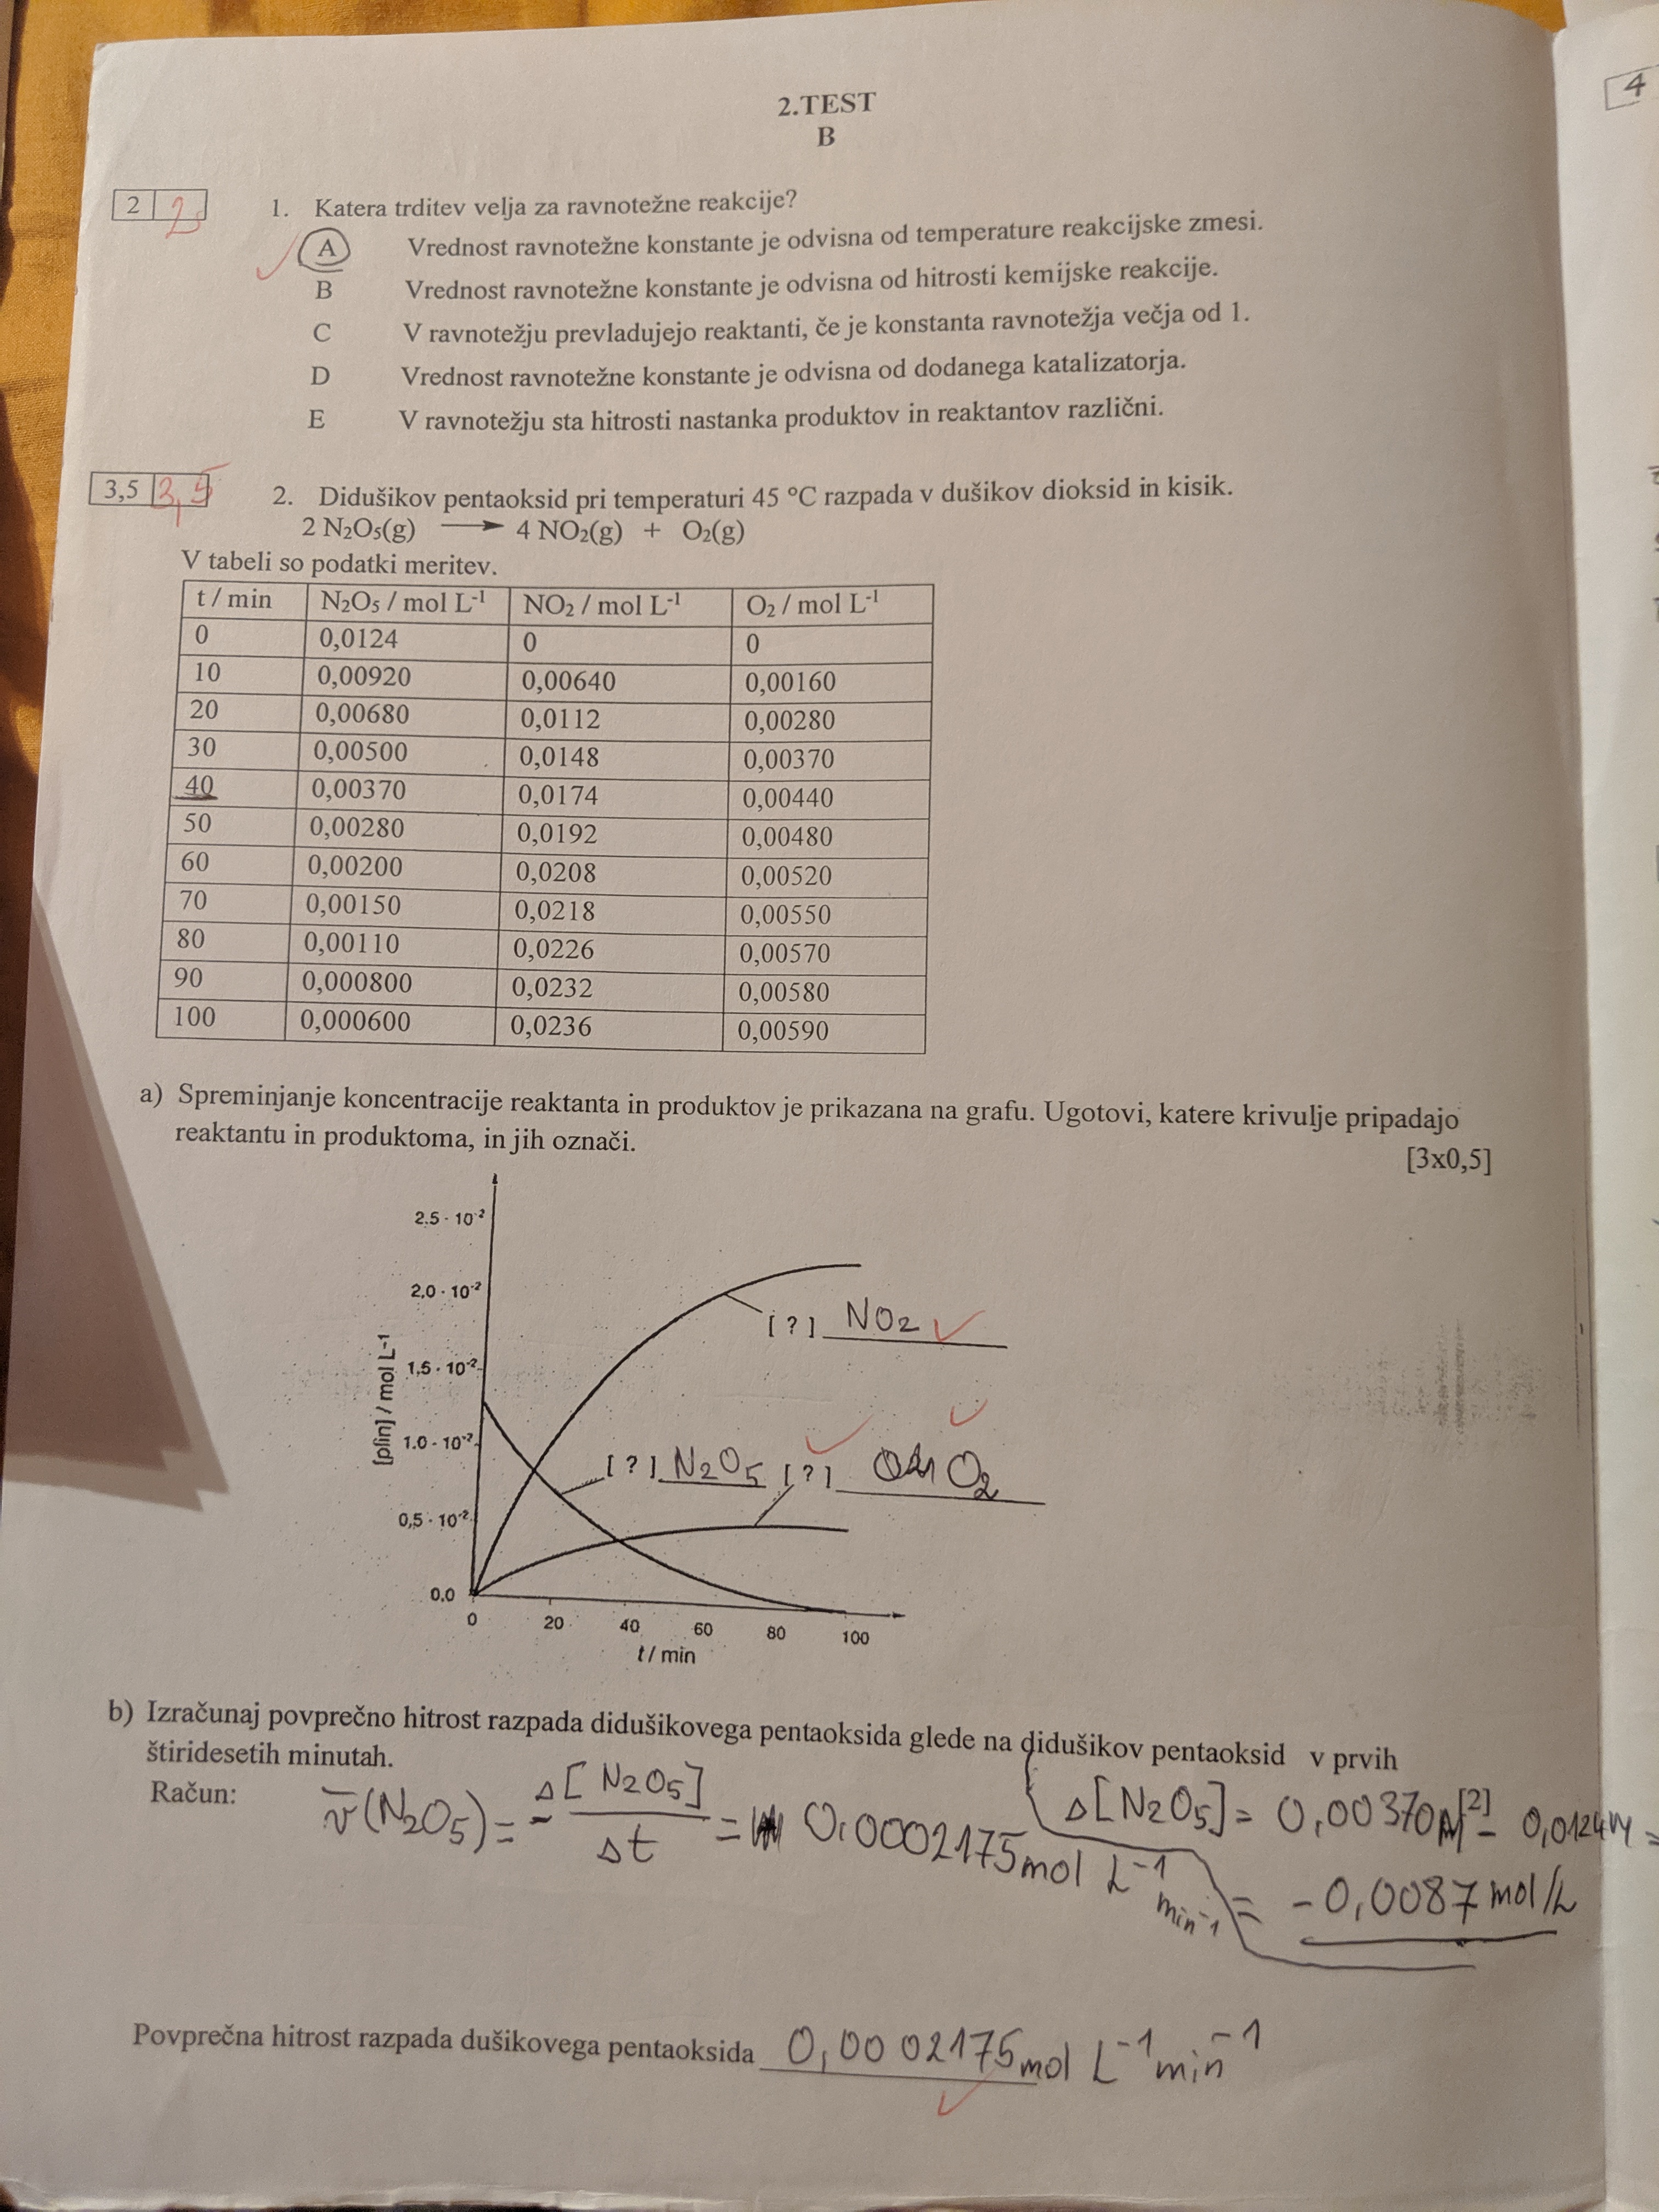 2.TEST
B
4
2 2
1. Katera trditev velja za ravnotežne reakcije?
A Vrednost ravnotežne konstante je odvisna od temperature reakcijske zmesi.
B Vrednost ravnotežne konstante je odvisna od hitrosti kemijske reakcije.
C V ravnotežju prevladujejo reaktanti, če je konstanta ravnotežja večja od 1.
D Vrednost ravnotežne konstante je odvisna od dodanega katalizatorja.
E V ravnotežju sta hitrosti nastanka produktov in reaktantov različni.
3,5 3,5
2. Didušikov pentaoksid pri temperaturi 45 °C razpada v dušikov dioksid in kisik.
2 N₂O₅(g) → 4 NO₂(g) + O₂(g)
V tabeli so podatki meritev.
t / min N₂O₅ / mol L⁻¹ NO₂ / mol L⁻¹ O₂ / mol L⁻¹
0 0,0124 0 0
10 0,00920 0,00640 0,00160
20 0,00680 0,0112 0,00280
30 0,00500 0,0148 0,00370
40 0,00370 0,0174 0,00440
50 0,00280 0,0192 0,00480
60 0,00200 0,0208 0,00520
70 0,00150 0,0218 0,00550
80 0,00110 0,0226 0,00570
90 0,000800 0,0232 0,00580
100 0,000600 0,0236 0,00590
a) Spreminjanje koncentracije reaktanta in produktov je prikazana na grafu. Ugotovi, katere krivulje pripadajo
reaktantu in produktoma, in jih označi.
[3x0,5]
[plin] / mol L⁻¹
2.5 · 10⁻²
2,0 · 10⁻²
1,5 · 10⁻²
1.0 · 10⁻²
0,5 · 10⁻²
0.0
[?] NO₂
[?] N₂O₅ [?] O₂
0 20 40 60 80 100
t / min
b) Izračunaj povprečno hitrost razpada didušikovega pentaoksida glede na didušikov pentaoksid v prvih
štiridesetih minutah.
[2]
Račun: v̄(N₂O₅) = - Δ[N₂O₅] / Δt = 0,0002175 mol L⁻¹ min⁻¹
Δ[N₂O₅] = 0,00370M - 0,0124M =
= -0,0087 mol/L
Povprečna hitrost razpada dušikovega pentaoksida 0,0002175 mol L⁻¹ min⁻¹